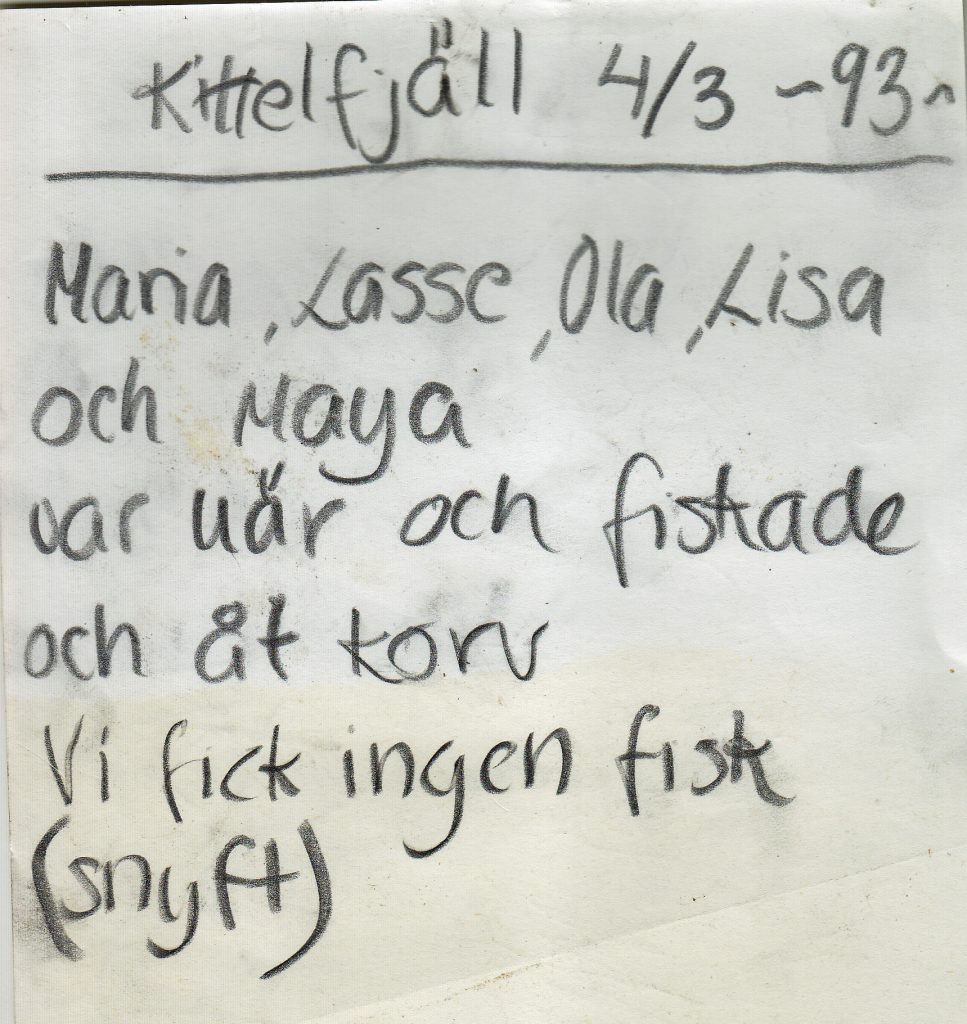 Kittelfjäll 4/3 ~93~
Maria, Lasse, Ola, Lisa
och Maya
var här och fiskade
och åt korv
Vi fick ingen fisk
(snyft)